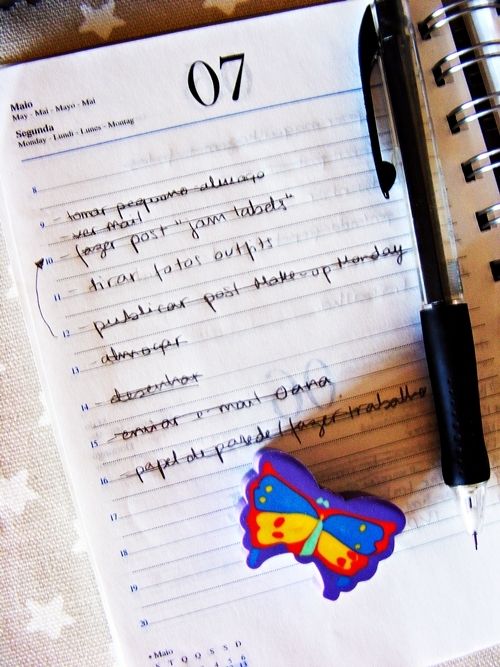 07
Maio
May - Mai - Mayo - Mai
Segunda
Monday - Lundi - Lunes - Montag
8
9 - tomar pequeno-almoço
- ver mail
10 - fazer post "jam labels"
11 - tirar fotos outfits
12 - publicar post Make-up Monday
13 - almoçar
14 - desenhar
15 - enviar e-mail Oana
16 - papel de parede / fazer trabalho
17
18
19
20
• Maio
S T Q Q S S D